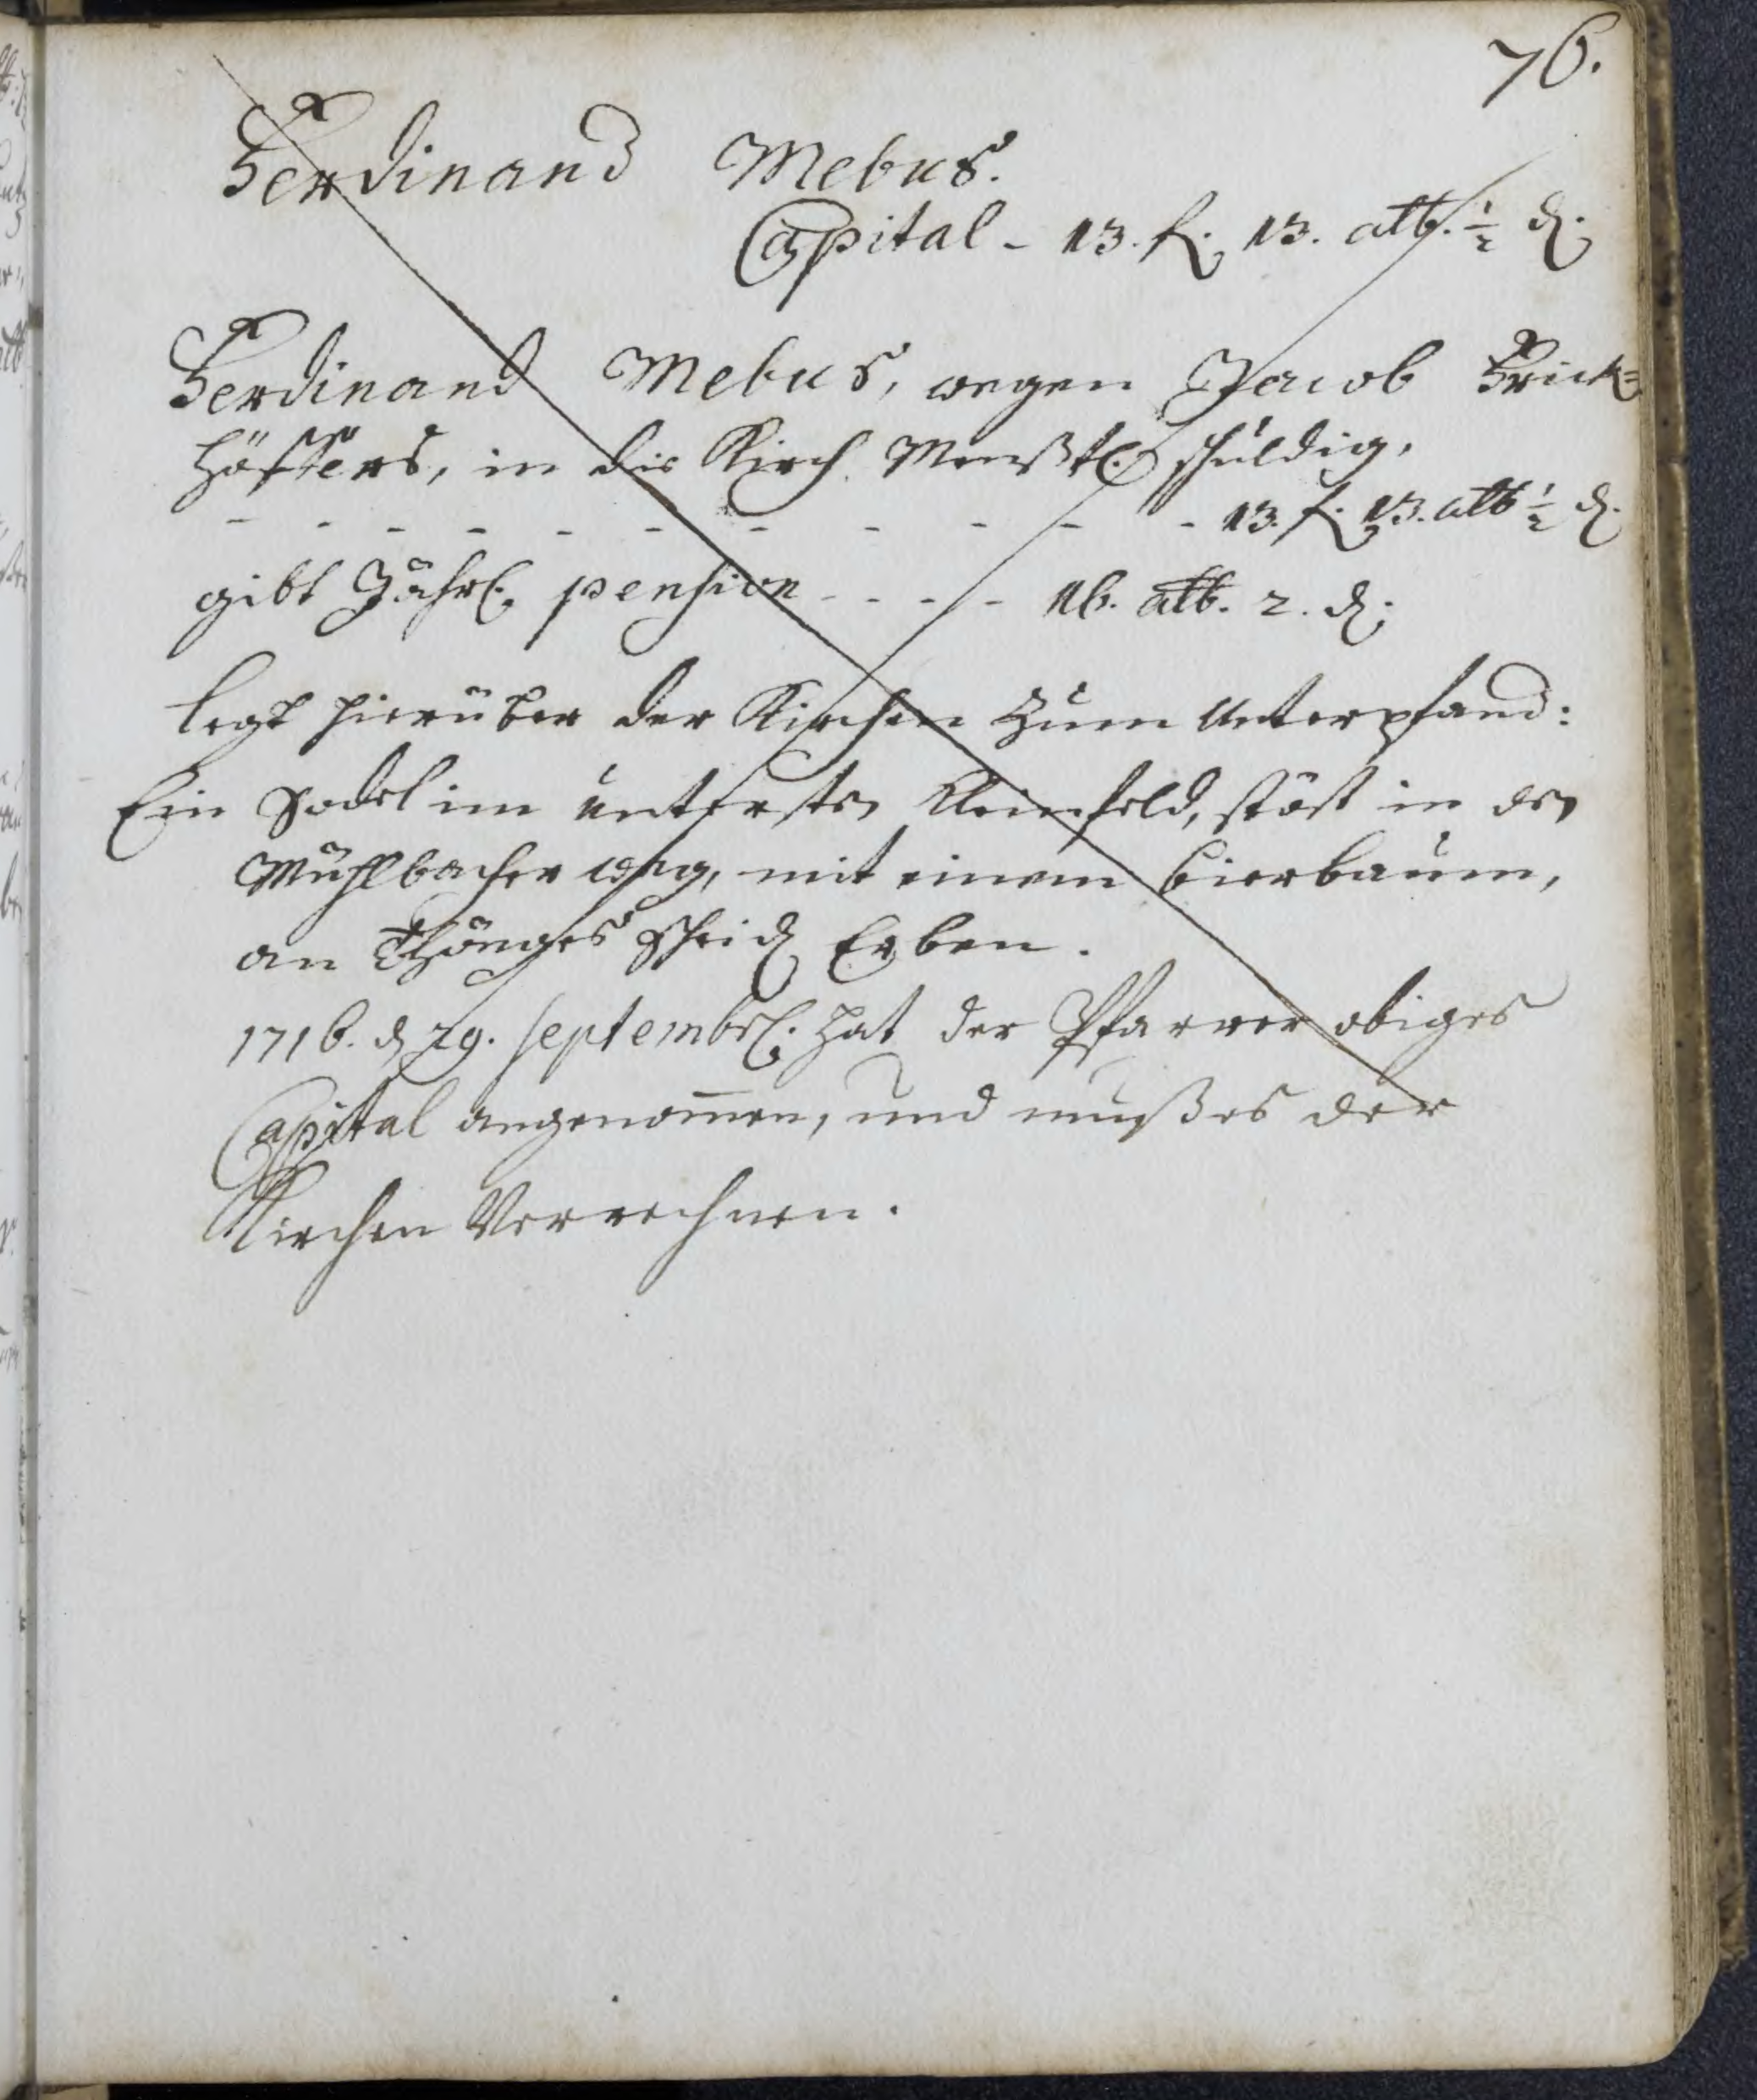 76.
Ferdinand Mebus.
Capital - 13. fl. 13. alb. ½ d.
Ferdinand Mebus, wegen Jacob Frick=
höffers, in die Kirch schuldig,
- - - - - - - - - - - 13. f. 13. alb ½ d.
gibt Jährl. pension - - - - 16. alb. 2. d.
legt hierüber der Kirchen zum Unterpfand:
Ein Sodel im untersten Kleinfeld, stöst in den
Mühlbacher weg, mit einem bierbaum,
an Thönges Scheid Erben.
1716. d 29. septembrl. hat der Pfarrer obiges
Capital angenom̄en, und muß es der
Kirchen Verrechnen.